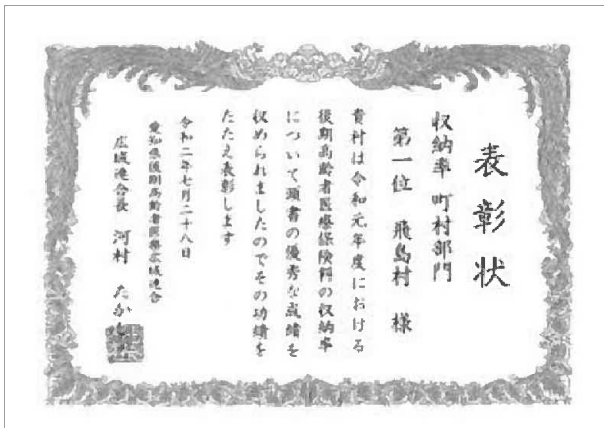 表彰状
収納率 町村部門
第一位 飛島村 様
貴村は令和元年度における
後期高齢者医療保険料の収納率
について頭書の優秀な成績を
収められましたのでその功績を
たたえ表彰します
令和二年七月二十八日
愛知県後期高齢者医療広域連合
広域連合長 河村 たかし